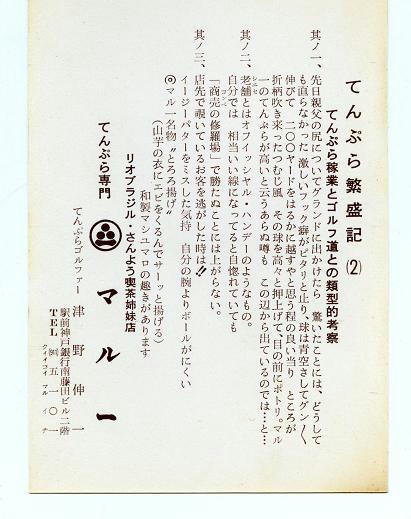 てんぷら繁盛記 (2)
てんぷら稼業とゴルフ道との類型的考察
其ノ一、先日親父の尻についてグランドに出かけたら 驚いたことには、どうして
も直らなかった 激しいフック癖がピタリと止り、球は青空さしてグン〱
伸びて 二〇〇ヤードをはるかに越すやと思う程の良い当り ところが
折柄吹き来ったつむじ風、その球を高々と押上げて、目の前にポトリ。マル
一のてんぷらが高いと云うあらぬ噂も この辺から出ているのでは…と…
其ノ二、老舗とはオフイッシヤル・ハンデーのようなもの。
シニセ
自分では 相当いい線になってると自惚れていても
「商売の修羅場」で勝たぬことには上がらない。
コンペ
其ノ三、店先で覗いているお客を逃がした時は!!
イージーパターをミスした気持 自分の腕よりボールがにくい
◎マル一名物〝とろろ揚げ〟
(山芋の衣にエビをくるんでサーッと揚げる)
和製マシユマロの趣きがあります
リオブラジル・さんよう喫茶姉妹店
てんぷら専門 マルー
てんぷらゴルファー 津野伸一
駅前神戸銀行南藤田ビル二階
TEL ㈣五一〇一
クイ イコイ マル イチ